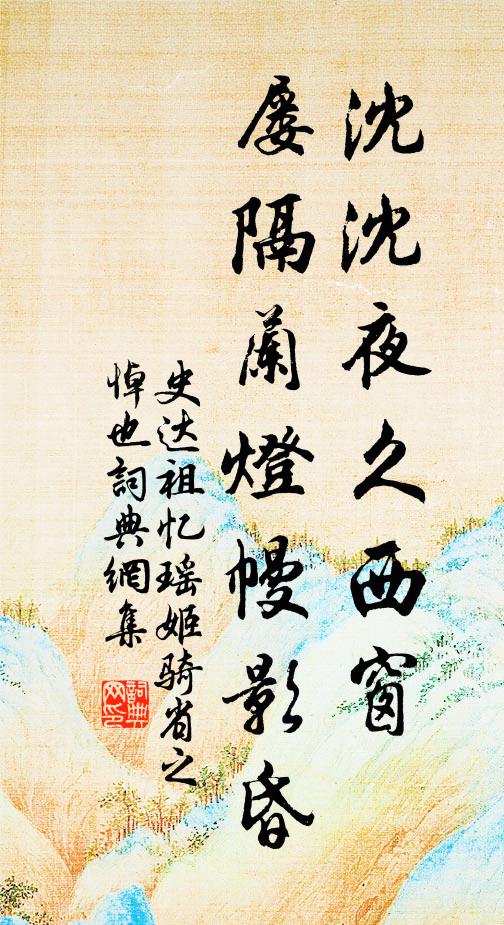 沈沈夜久西窗
屡隔蘭燈幔影昏
史达祖忆瑶姬骑省之
悼也詞典網集
詞典
网印